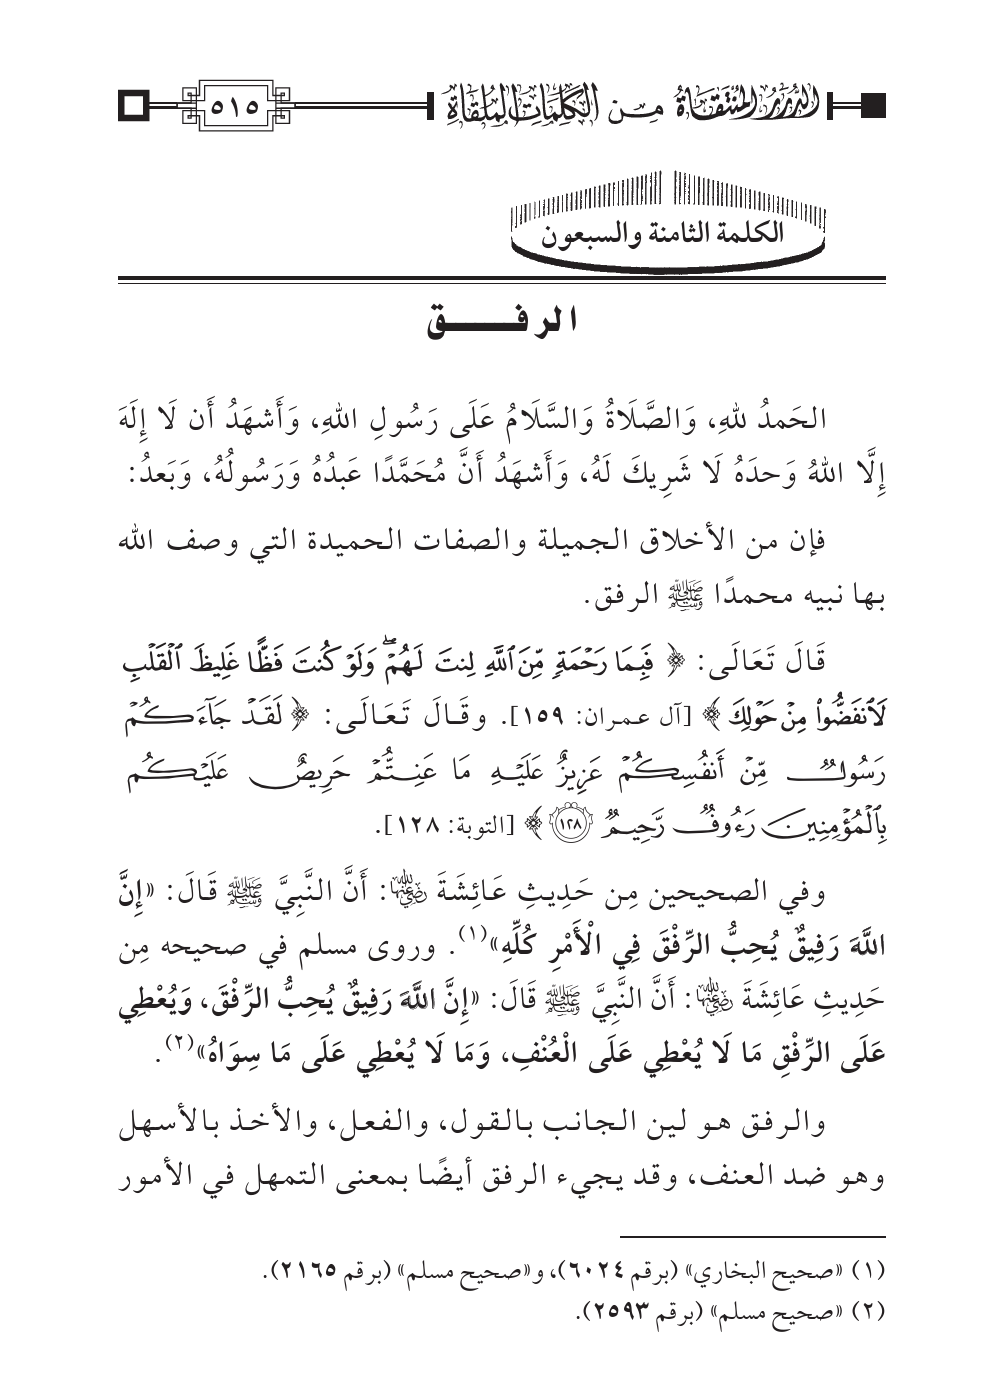 الدُّرَرُ المُنْتَقَاةُ مِـن الكَلِمَاتِ المُلْقَاةِ ٥١٥
الكلمة الثامنة والسبعون
الرفـــق
الحَمدُ للهِ، وَالصَّلَاةُ وَالسَّلَامُ عَلَى رَسُولِ اللهِ، وَأَشهَدُ أَن لَا إِلَهَ
إِلَّا اللهُ وَحدَهُ لَا شَرِيكَ لَهُ، وَأَشهَدُ أَنَّ مُحَمَّدًا عَبدُهُ وَرَسُولُهُ، وَبَعدُ:
فإن من الأخلاق الجميلة والصفات الحميدة التي وصف الله
بها نبيه محمدًا ﷺ الرفق.
قَالَ تَعَالَى: ﴿ فَبِمَا رَحْمَةٍ مِّنَ ٱللَّهِ لِنتَ لَهُمْ ۖ وَلَوْ كُنتَ فَظًّا غَلِيظَ ٱلْقَلْبِ
لَٱنفَضُّوا۟ مِنْ حَوْلِكَ ﴾ [آل عمران: ١٥٩]. وقَالَ تَعَالَى: ﴿ لَقَدْ جَآءَكُمْ
رَسُولٌ مِّنْ أَنفُسِكُمْ عَزِيزٌ عَلَيْهِ مَا عَنِتُّمْ حَرِيصٌ عَلَيْكُم
بِٱلْمُؤْمِنِينَ رَءُوفٌ رَّحِيمٌ ١٢٨ ﴾ [التوبة: ١٢٨].
وفي الصحيحين مِن حَدِيثِ عَائِشَةَ رَضِيَ اللَّهُ عَنْهَا: أَنَّ النَّبِيَّ ﷺ قَالَ: «إِنَّ
اللَّهَ رَفِيقٌ يُحِبُّ الرِّفْقَ فِي الْأَمْرِ كُلِّهِ»(١). وروى مسلم في صحيحه مِن
حَدِيثِ عَائِشَةَ رَضِيَ اللَّهُ عَنْهَا: أَنَّ النَّبِيَّ ﷺ قَالَ: «إِنَّ اللَّهَ رَفِيقٌ يُحِبُّ الرِّفْقَ، وَيُعْطِي
عَلَى الرِّفْقِ مَا لَا يُعْطِي عَلَى الْعُنْفِ، وَمَا لَا يُعْطِي عَلَى مَا سِوَاهُ»(٢).
والرفق هو لين الجانب بالقول، والفعل، والأخذ بالأسهل
وهو ضد العنف، وقد يجيء الرفق أيضًا بمعنى التمهل في الأمور
(١) «صحيح البخاري» (برقم ٦٠٢٤)، و«صحيح مسلم» (برقم ٢١٦٥).
(٢) «صحيح مسلم» (برقم ٢٥٩٣).